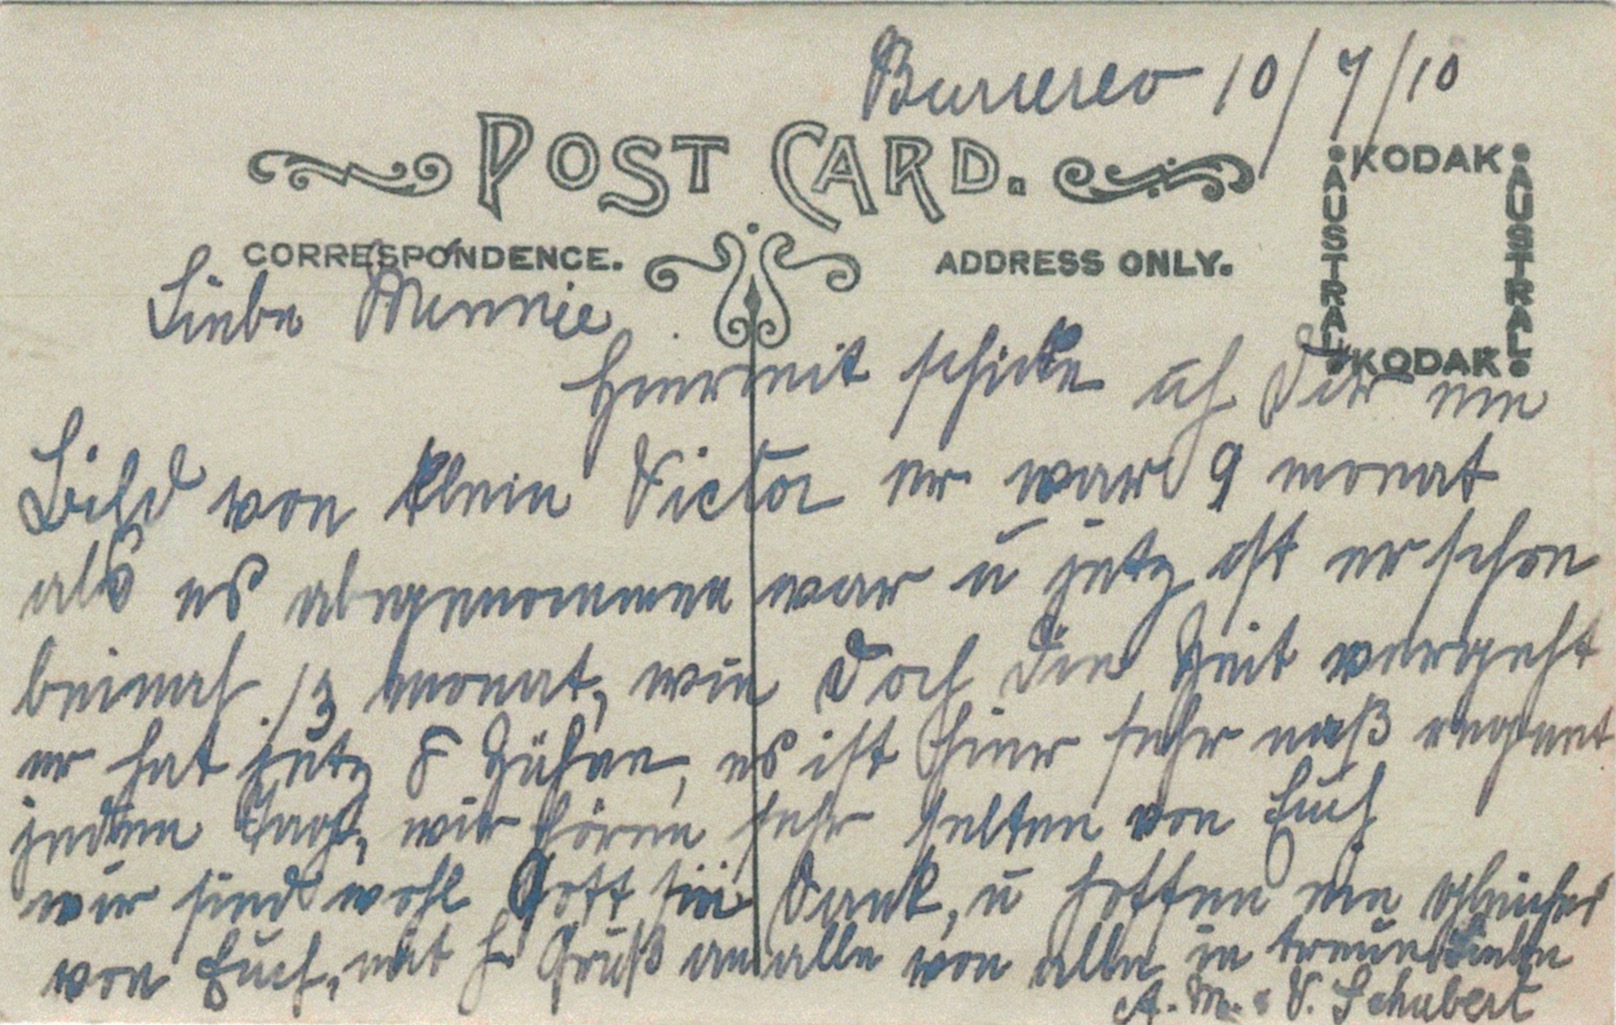 Burrereo 10/7/10
POST CARD.
KODAK
AUSTRAL
AUSTRAL
KODAK
CORRESPONDENCE.
ADDRESS ONLY.
Liebe Minnie
Hiermit schicke ich Dir ein
Bild von klein Victor er war 9 monat
als es abgenommen war u jetz ist er schon
beinah 13 monat, wie doch die Zeit vergeht
er hat jetz 8 Zähne, es ist hier sehr naß regnet
jeden Tag, wir hören sehr selten von Euch
wir sind wohl Gott sei Dank, u hoffen ein gleiches
von Euch, mit h Gruß an alle von alle in treue Liebe
A. M. & V. Schubert